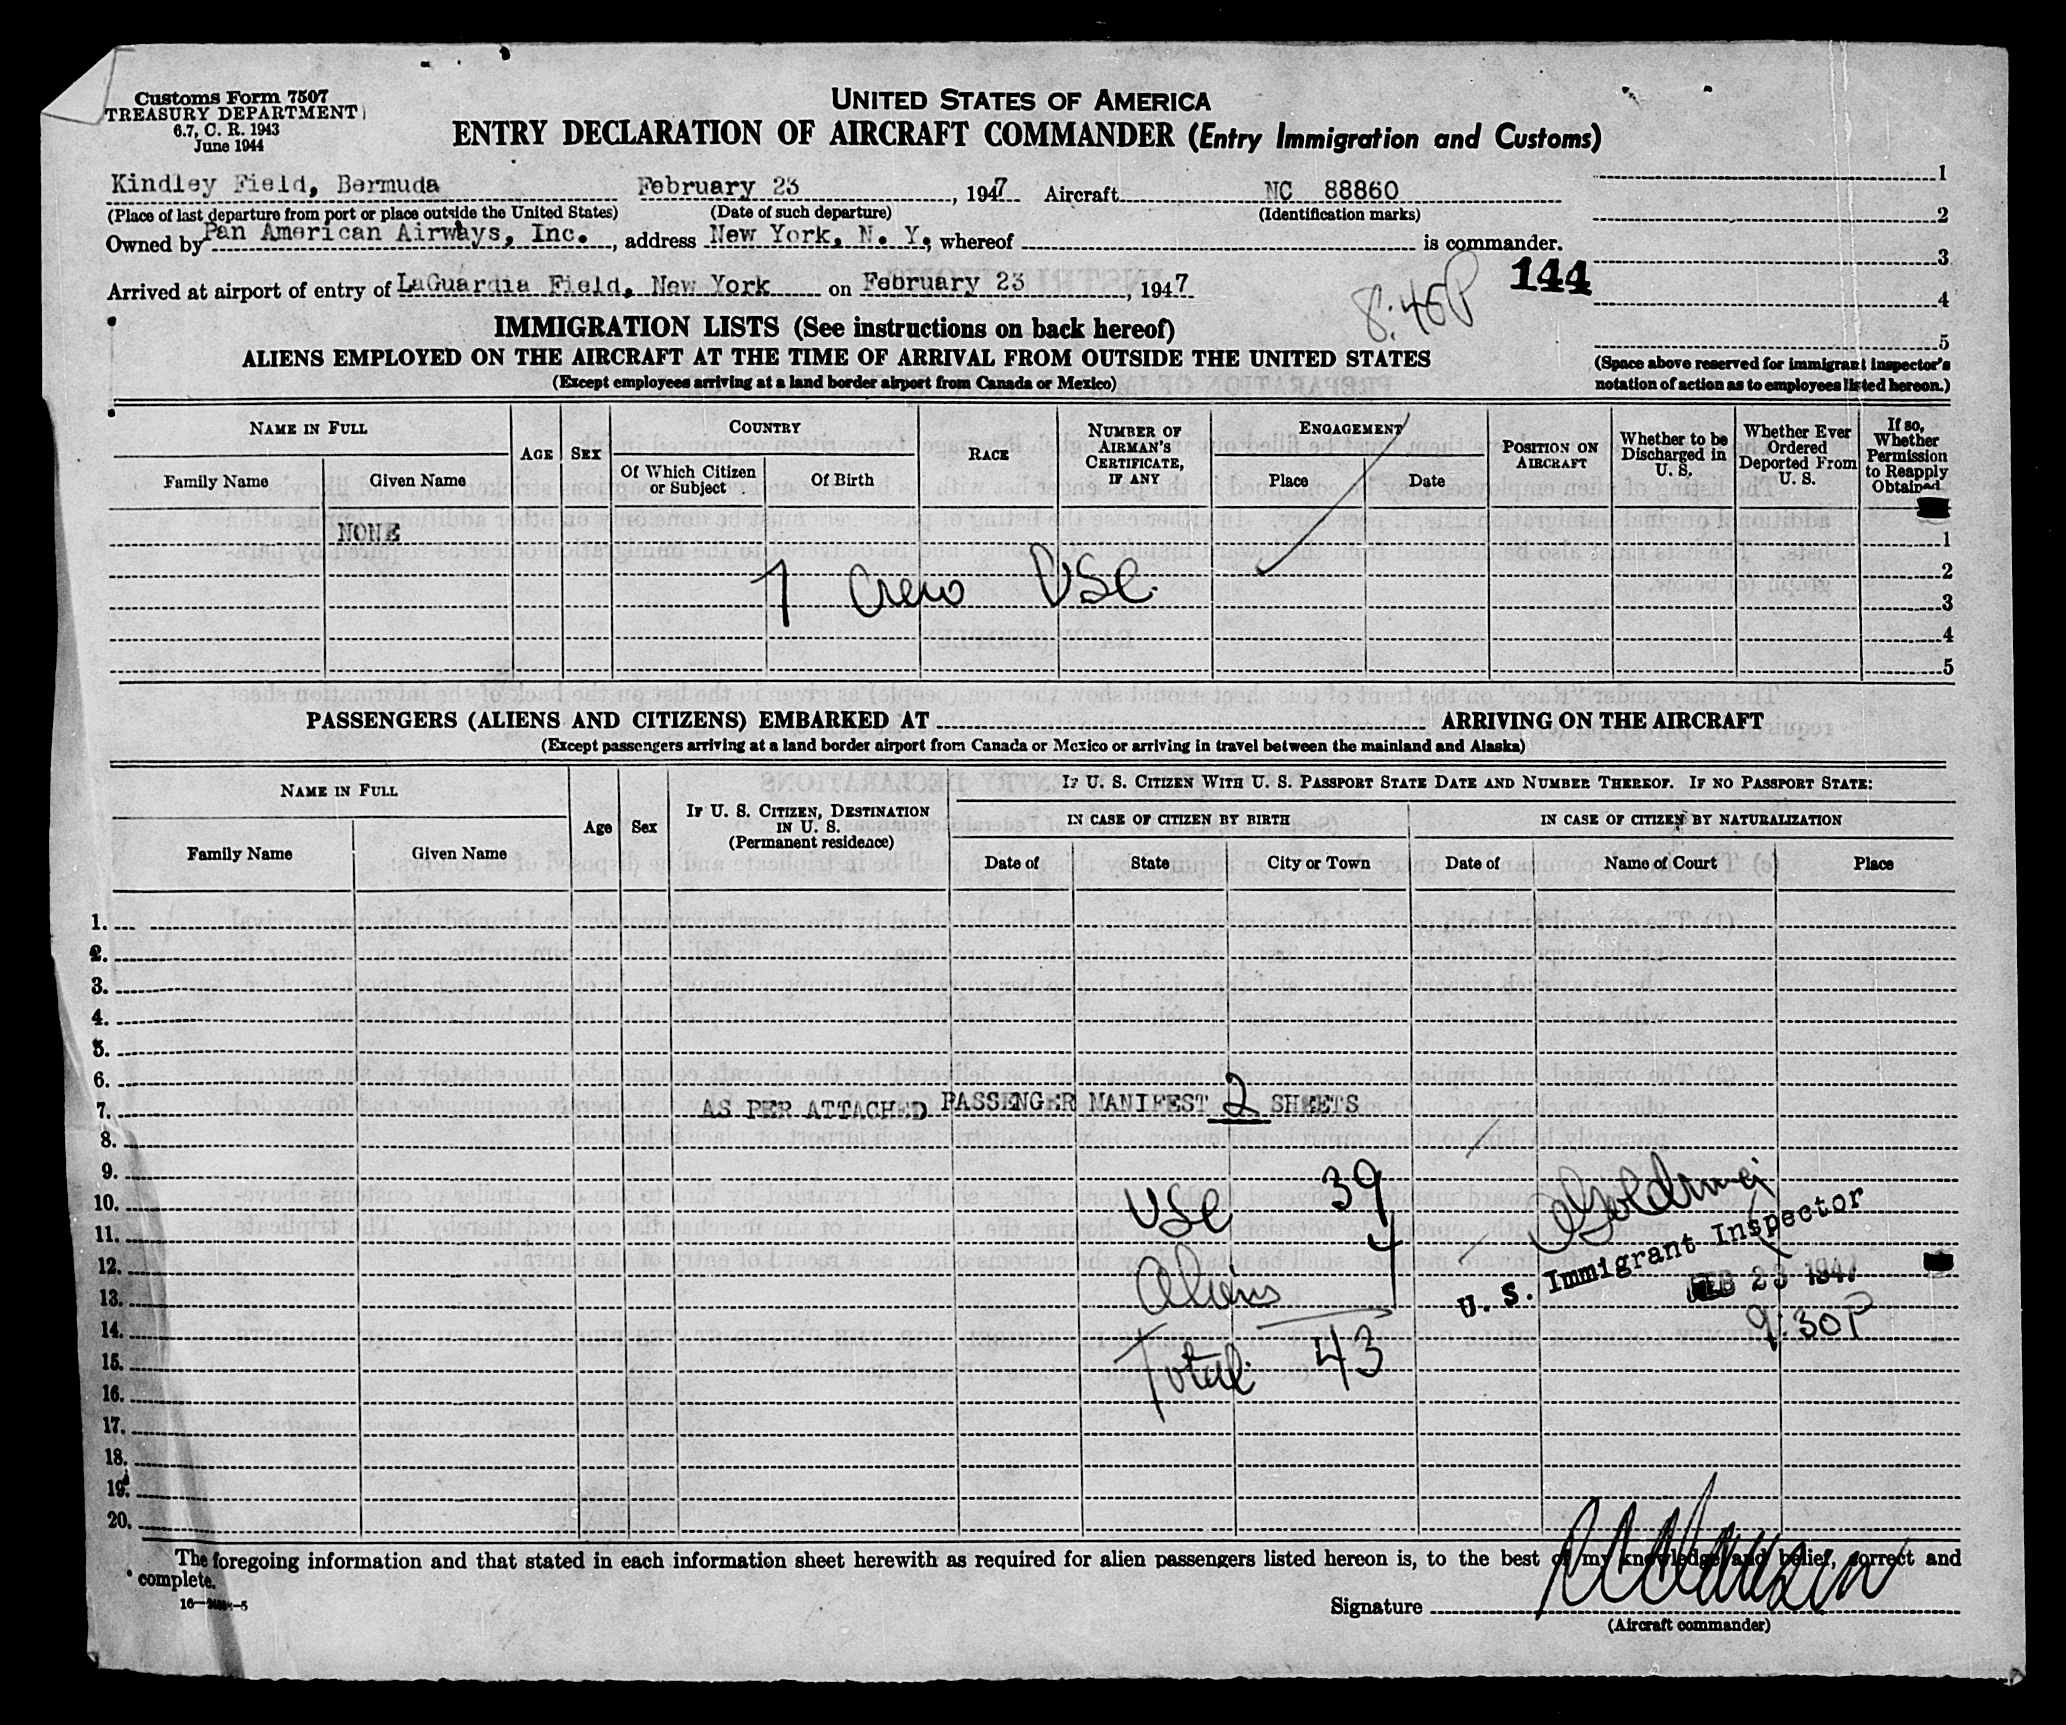 Customs Form 7507
TREASURY DEPARTMENT
6.7, C. R. 1943
June 1944
UNITED STATES OF AMERICA
ENTRY DECLARATION OF AIRCRAFT COMMANDER (Entry Immigration and Customs)
Kindley Field, Bermuda February 23, 1947 Aircraft NC 88860
(Place of last departure from port or place outside the United States) (Date of such departure) (Identification marks)
Owned by Pan American Airways, Inc., address New York, N. Y., whereof is commander.
Arrived at airport of entry of LaGuardia Field, New York on February 23, 1947
8:45P 144
1
2
3
4
5
(Space above reserved for immigrant inspector's
notation of action as to employees listed hereon.)
IMMIGRATION LISTS (See instructions on back hereof)
ALIENS EMPLOYED ON THE AIRCRAFT AT THE TIME OF ARRIVAL FROM OUTSIDE THE UNITED STATES
(Except employees arriving at a land border airport from Canada or Mexico)
NAME IN FULL
Family Name Given Name
AGE SEX
COUNTRY
Of Which Citizen or Subject Of Birth
RACE
NUMBER OF AIRMAN'S CERTIFICATE, IF ANY
ENGAGEMENT
Place Date
POSITION ON AIRCRAFT
Whether to be Discharged in U. S.
Whether Ever Ordered Deported From U. S.
If so, Whether Permission to Reapply Obtained
NONE
1
2
7 Crew USC
3
4
5
PASSENGERS (ALIENS AND CITIZENS) EMBARKED AT ARRIVING ON THE AIRCRAFT
(Except passengers arriving at a land border airport from Canada or Mexico or arriving in travel between the mainland and Alaska)
NAME IN FULL
Family Name Given Name
Age Sex
IF U. S. CITIZEN, DESTINATION IN U. S.
(Permanent residence)
IF U. S. CITIZEN WITH U. S. PASSPORT STATE DATE AND NUMBER THEREOF. IF NO PASSPORT STATE:
IN CASE OF CITIZEN BY BIRTH IN CASE OF CITIZEN BY NATURALIZATION
Date of State City or Town Date of Name of Court Place
1.
2.
3.
4.
5.
6.
7. AS PER ATTACHED PASSENGER MANIFEST 2 SHEETS
8.
9.
10. USC 39
11. 4
12. Aliens
U. S. Immigrant Inspector
FEB 23 1947
13.
14. 9:30P
15. Total 43
16.
17.
18.
19.
20.
The foregoing information and that stated in each information sheet herewith as required for alien passengers listed hereon is, to the best of my knowledge and belief, correct and
complete.
Signature
(Aircraft commander)